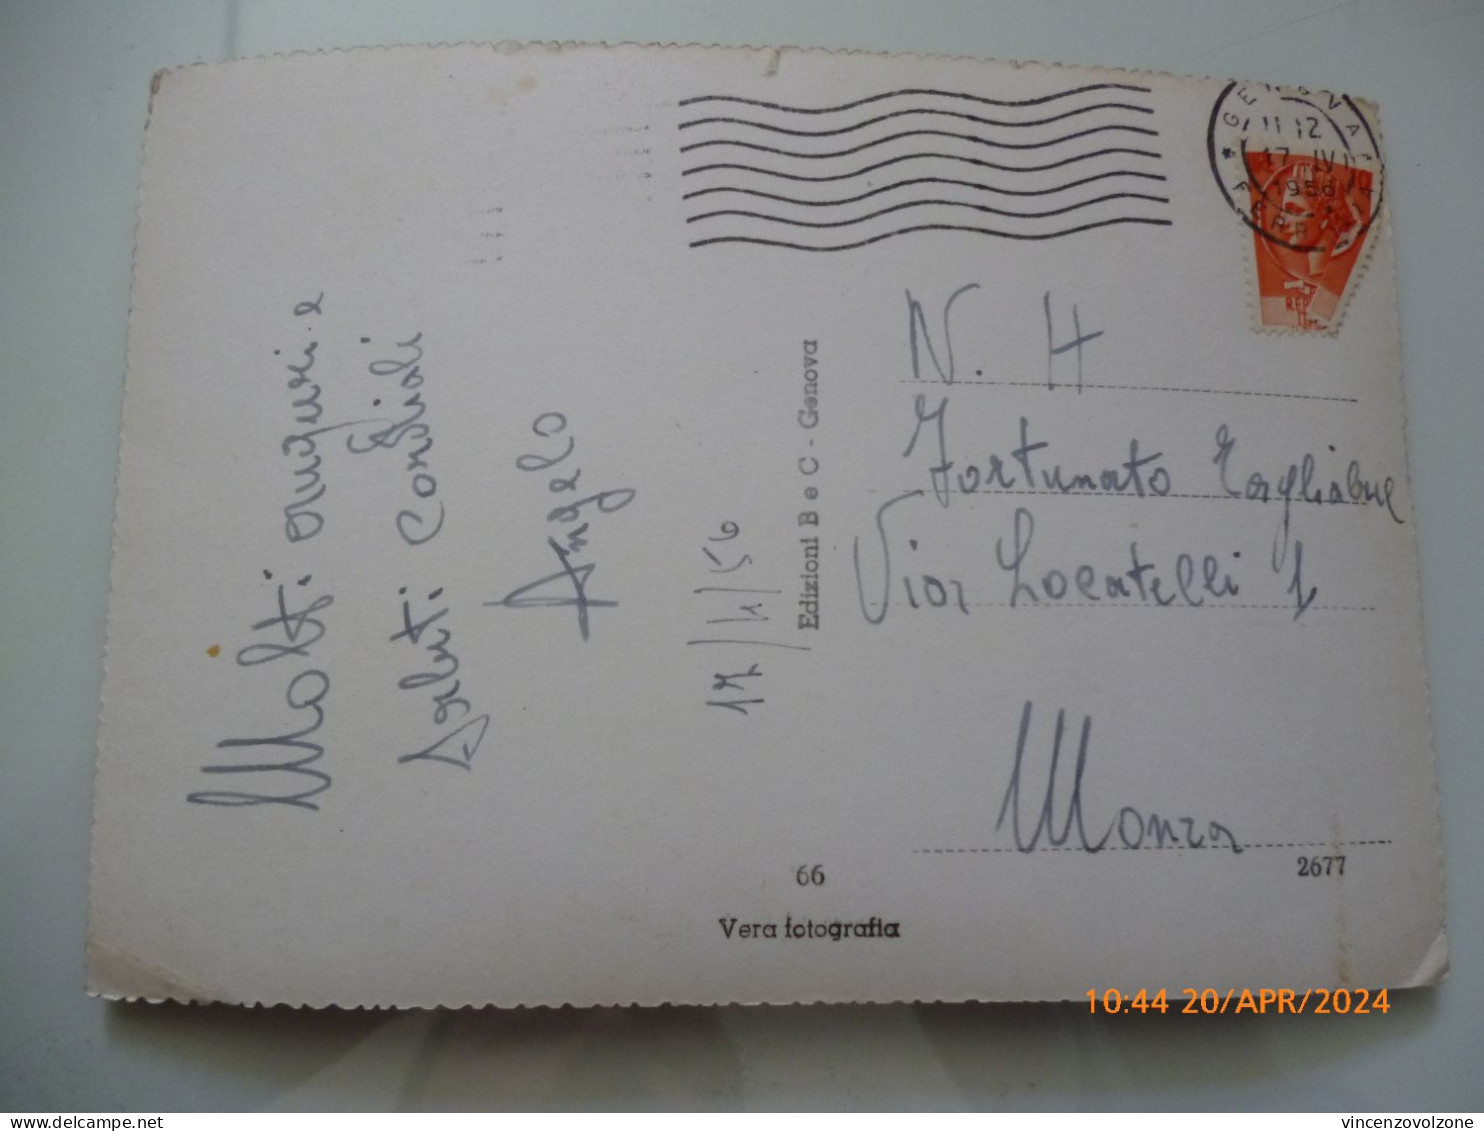 Molti auguri e
saluti cordiali
Angelo
17/4/56
Edizioni B e C - Genova
GENOVA
FERR
11-12
17 IV
1956
REP
N. H
Fortunato Tagliabue
Via Locatelli 1
Monza
66
2677
Vera fotografia
10:44 20/APR/2024
delcampe.net
vincenzovolzone